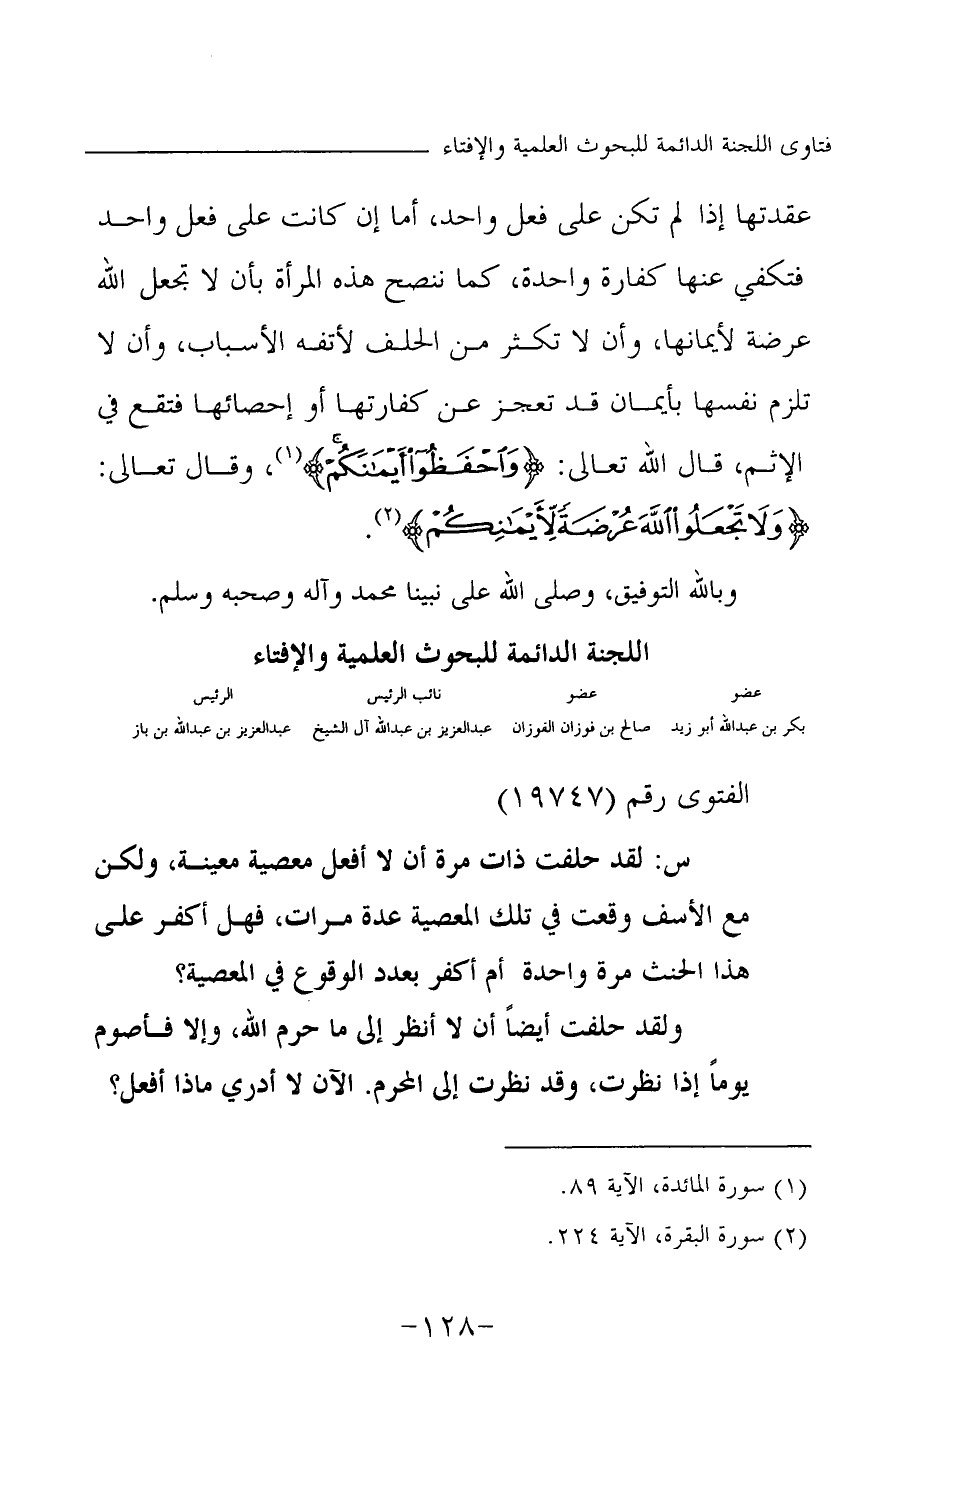 فتاوى اللجنة الدائمة للبحوث العلمية والإفتاء
عقدتها إذا لم تكن على فعل واحد، أما إن كانت على فعل واحد
فتكفي عنها كفارة واحدة، كما ننصح هذه المرأة بأن لا تجعل الله
عرضة لأيمانها، وأن لا تكثر من الحلف لأتفه الأسباب، وأن لا
تلزم نفسها بأيمان قد تعجز عن كفارتها أو إحصائها فتقع في
الإثم، قال الله تعالى: ﴿وَٱحْفَظُوٓا۟ أَيْمَـٰنَكُمْ ۚ﴾(١)، وقال تعالى:
﴿وَلَا تَجْعَلُوا۟ ٱللَّهَ عُرْضَةً لِّأَيْمَـٰنِكُمْ﴾(٢).
وبالله التوفيق، وصلى الله على نبينا محمد وآله وصحبه وسلم.
اللجنة الدائمة للبحوث العلمية والإفتاء
عضو عضو نائب الرئيس الرئيس
بكر بن عبدالله أبو زيد صالح بن فوزان الفوزان عبدالعزيز بن عبدالله آل الشيخ عبدالعزيز بن عبدالله بن باز
الفتوى رقم (١٩٧٤٧)
س: لقد حلفت ذات مرة أن لا أفعل معصية معينة، ولكن
مع الأسف وقعت في تلك المعصية عدة مرات، فهل أكفر على
هذا الحنث مرة واحدة أم أكفر بعدد الوقوع في المعصية؟
ولقد حلفت أيضاً أن لا أنظر إلى ما حرم الله، وإلا فأصوم
يوماً إذا نظرت، وقد نظرت إلى المحرم. الآن لا أدري ماذا أفعل؟
(١) سورة المائدة، الآية ٨٩.
(٢) سورة البقرة، الآية ٢٢٤.
-١٢٨-